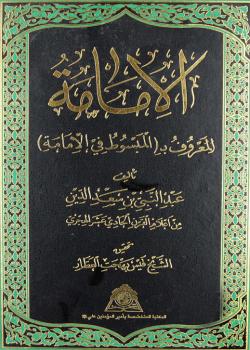 الإمامة
المعروف بـ (المبسوط في الإمامة)
تأليف
عبد النبي بن سعد الدين
من أعلام القرن الحادي عشر الهجري
تحقيق
الشيخ قيس بهجت العطار
المكتبة المتخصصة بأمير المؤمنين علي